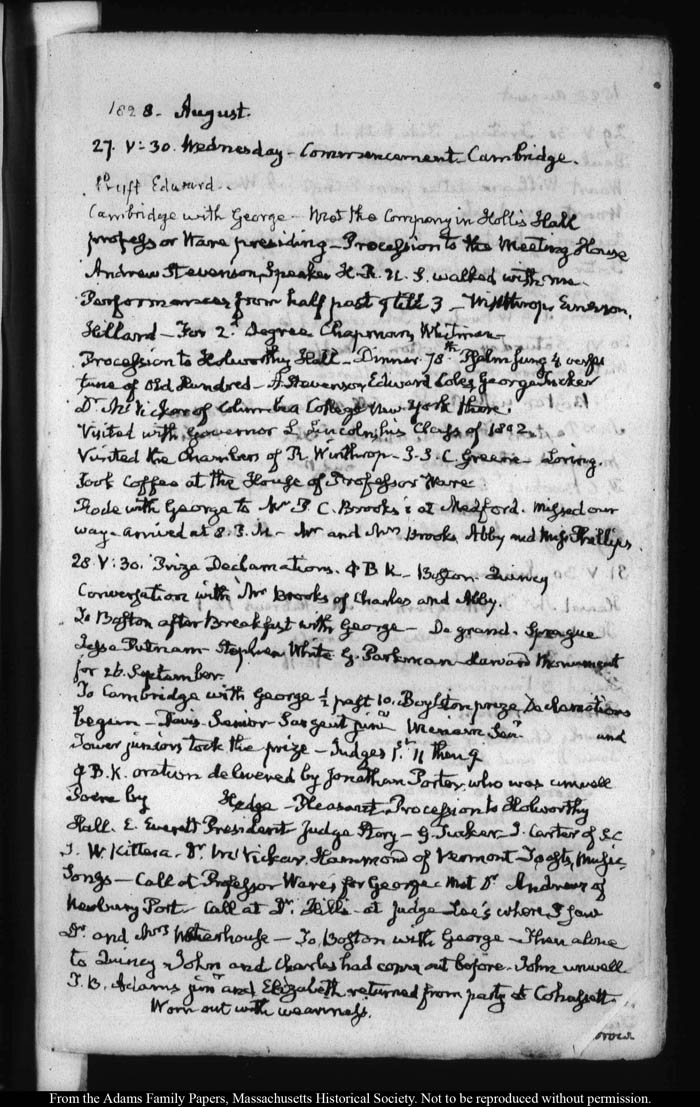 1828. August.
27. V:30. Wednesday - Commencement. Cambridge.
Cruft Edward.
Cambridge with George - Met the Company in Hollis Hall
professor Ware presiding - Procession to the Meeting House
Andrew Stevenson, Speaker H. R. U. S. walked with me.
Performances from half past 9 till 3 - Winthrop, Emerson,
Hillard - For 2.d Degree Chapman, Whitman -
Procession to Holworthy Hall - Dinner. 78.th Psalm sung 4 verses
tune of Old Hundred - A. Stevenson, Edward Coles, George Tucker
Dr. McVickar of Columbia College New-York there.
Visited with Governor L. Lincoln his Class of 1802.
Visited the Chambers of R. Winthrop - G. S. C. Greene - Loring.
Took Coffee at the House of Professor Ware
Rode with George to Mr. P. C. Brooks's at Medford. missed our
way - arrived at 8. P.M. - Mr. and Mrs. Brooks, Abby and Miss Phillips.
28. V:30. Prize Declamations. Φ B K - Boston. Quincy
Conversation with Mr. Brooks of Charles and Abby.
To Boston after Breakfast with George - Degrand. Sprague
Jesse Putnam - Stephen White G. Parkman - Harvard Monument
for 26. September.
To Cambridge with George ½ past 10. Boylston prize Declamations
begun - Davis Senior - Sargent junr. Merriam Senr. and
Tower juniors took the prize - Judges 1.st 11 then 9
Φ B. K. oration delivered by Jonathan Porter, who was unwell
Poem by Hedge - Pleasant. Procession to Holworthy
Hall. E. Everett President Judge Story - G. Tucker - J. Carter of S.C
J. W Kittera - Dr. McVickar. Hammond of Vermont - Toasts, Music,
Songs - Call at Professor Ware's for George - Met Dr. Andrews of
Newbury Port - Call at Dr. Hill's - at Judge Lee's where I saw
Dr. and Mrs. Waterhouse - To Boston with George - Then alone
to Quincy - John and Charles had come out before. John unwell.
T. B. Adams junr. and Elizabeth returned from party at Cohassett.
Worn out with weariness.
From the Adams Family Papers, Massachusetts Historical Society. Not to be reproduced without permission.